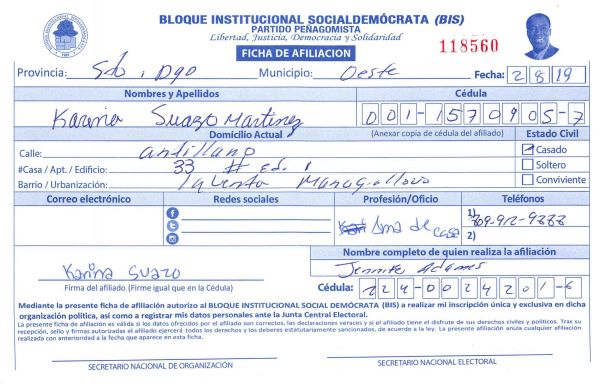 BLOQUE INSTITUCIONAL SOCIALDEMÓCRATA (BIS)
PARTIDO PEÑAGOMISTA
Libertad, Justicia, Democracia y Solidaridad
FICHA DE AFILIACION
118560
Provincia: Sdo, Dgo Municipio: Oeste Fecha: 2 8 19
Nombres y Apellidos Cédula
Karina Suazo Martinez 001-1570905-7
Domicilio Actual (Anexar copia de cédula del afiliado) Estado Civil
Calle: antillano Casado
#Casa / Apt. / Edificio: 33 # ed. 1 Soltero
Barrio / Urbanización: Conviviente
Correo electrónico Redes sociales Profesión/Oficio Teléfonos
Ama de casa 1)
2)
Nombre completo de quien realiza la afiliación
Karina Suazo Jennifer Adames
Firma del afiliado (Firme igual que en la Cédula) Cédula: 224-0024201-6
Mediante la presente ficha de afiliación autorizo al BLOQUE INSTITUCIONAL SOCIAL DEMÓCRATA (BIS) a realizar mi inscripción única y exclusiva en dicha
organización política, así como a registrar mis datos personales ante la Junta Central Electoral.
La presente ficha de afiliación es válida si los datos ofrecidos por el afiliado son correctos, las declaraciones veraces y si el afiliado tiene el disfrute de sus derechos civiles y políticos. Tras su
recepción, sello y firmas autorizadas el afiliado ejercerá todos los derechos y los deberes estatutariamente sancionados, de acuerdo a la ley. La presente afiliación anula cualquier afiliación
realizada con anterioridad a la fecha que aparece en esta ficha.
SECRETARIO NACIONAL DE ORGANIZACIÓN SECRETARIO NACIONAL ELECTORAL